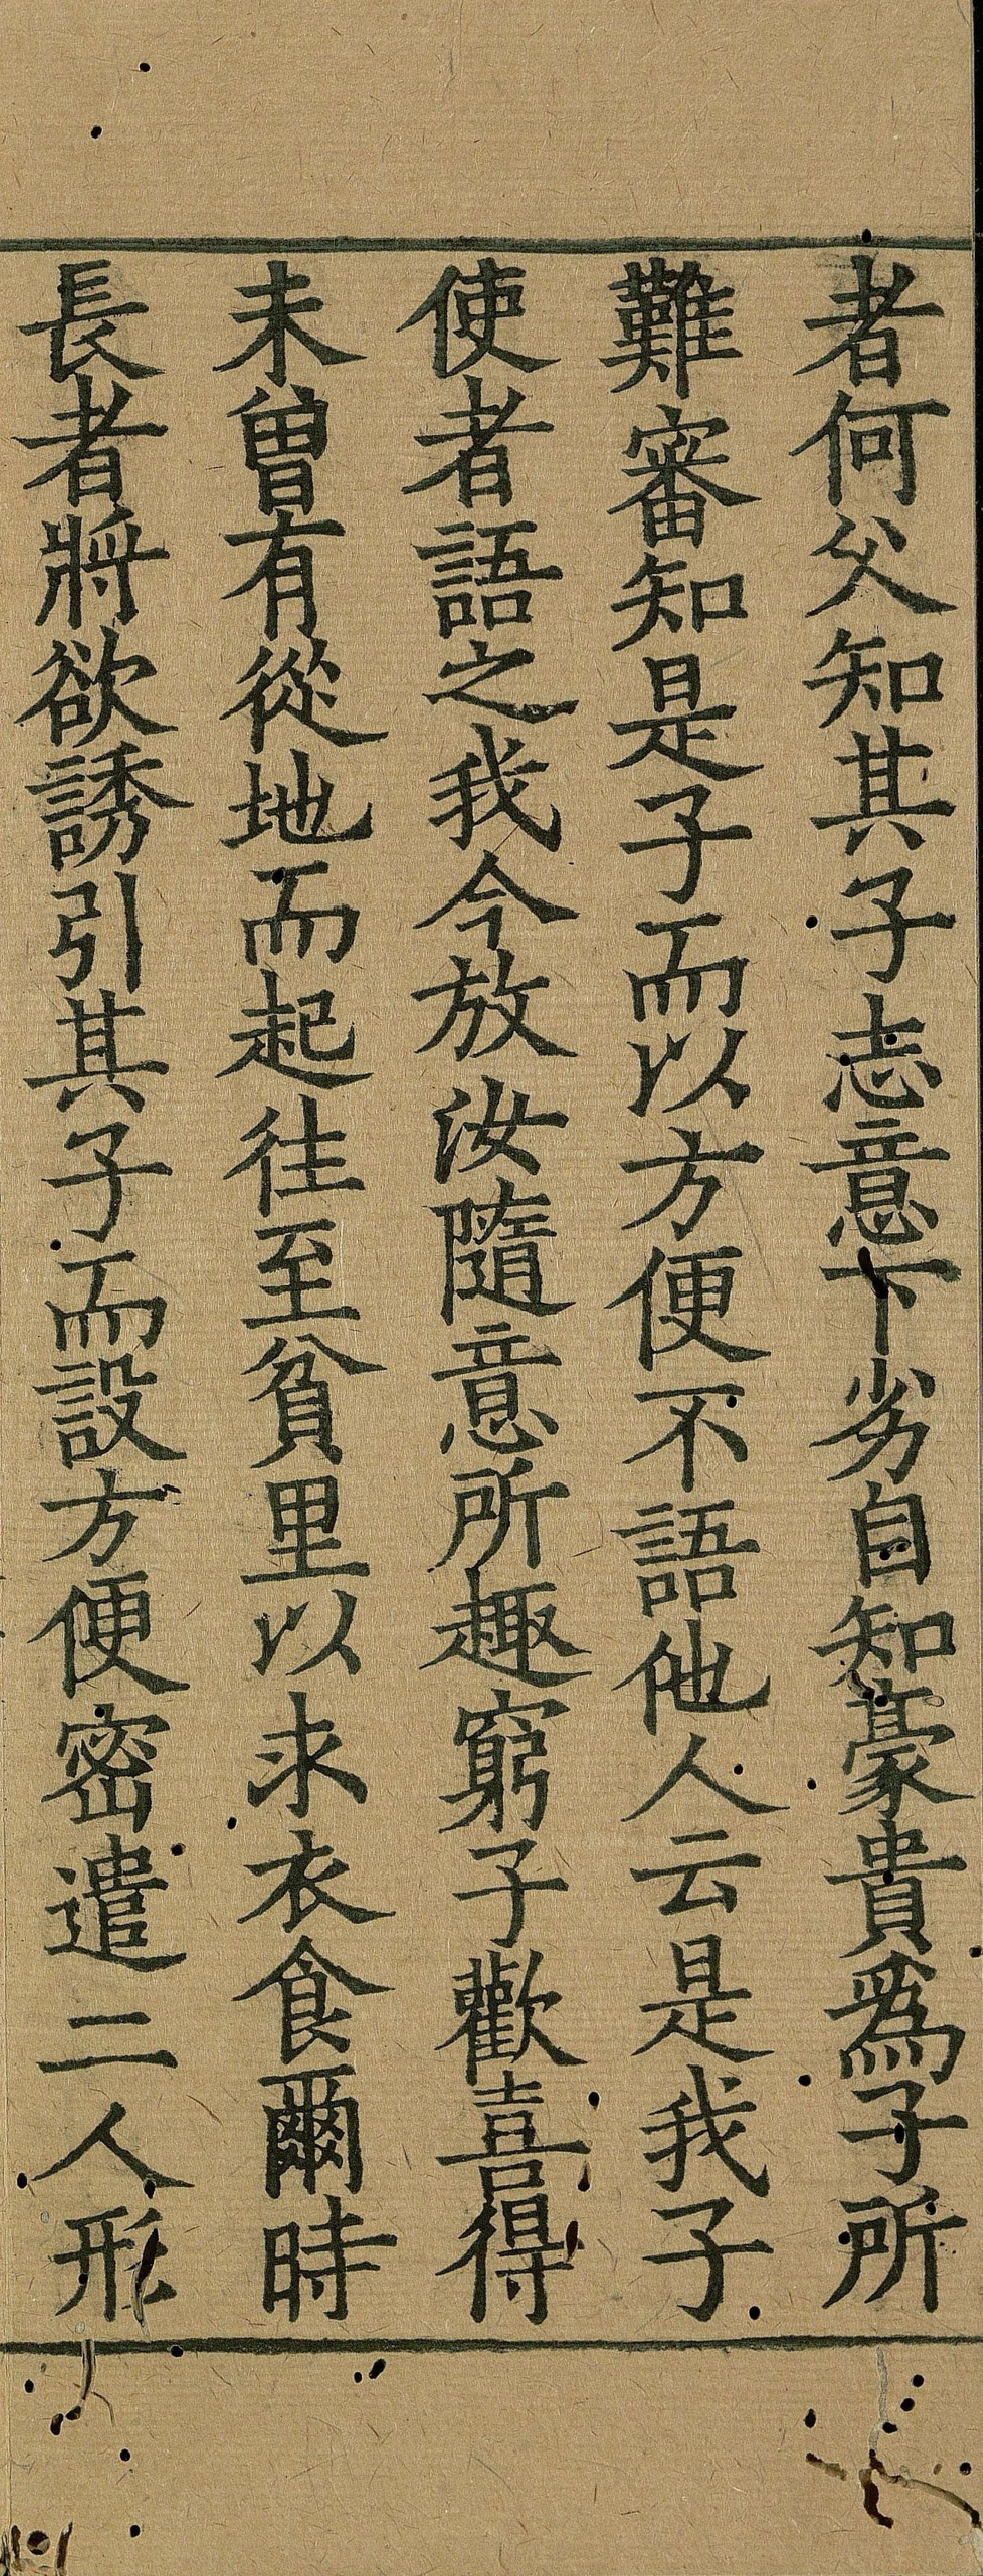 者何父知其子志意下劣自知豪貴爲子所
難審知是子而以方便不語他人云是我子
使者語之我今放汝隨意所趣窮子歡喜得
未曾有從地而起往至貧里以求衣食爾時
長者將欲誘引其子而設方便密遣二人形